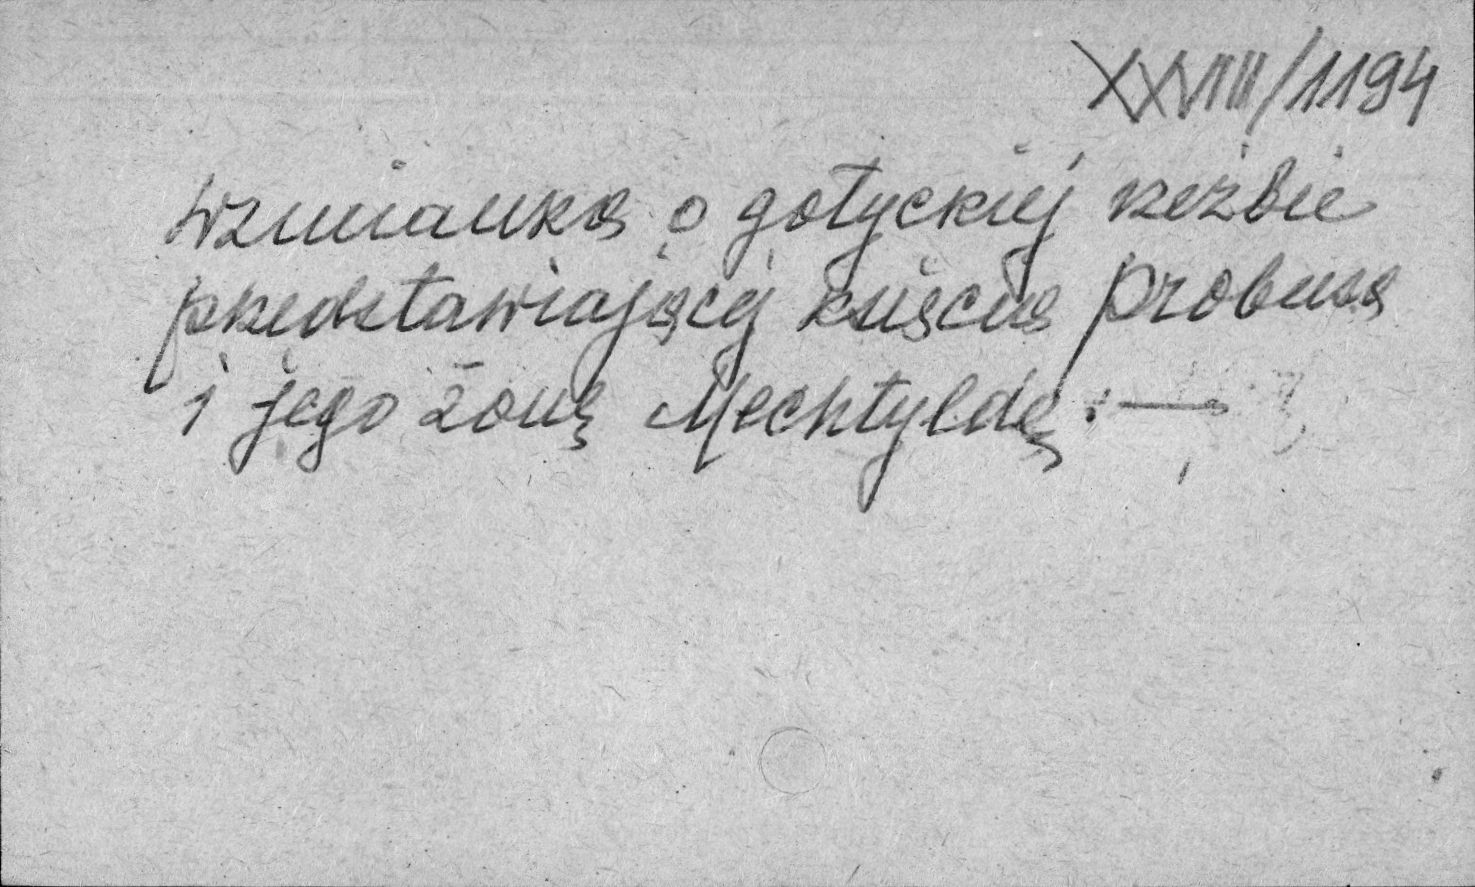 XXVIII/1194
Wzmianka o gotyckiej rzeźbie
przedstawiającej księcia Probusa
i jego żonę Mechtyldę. —